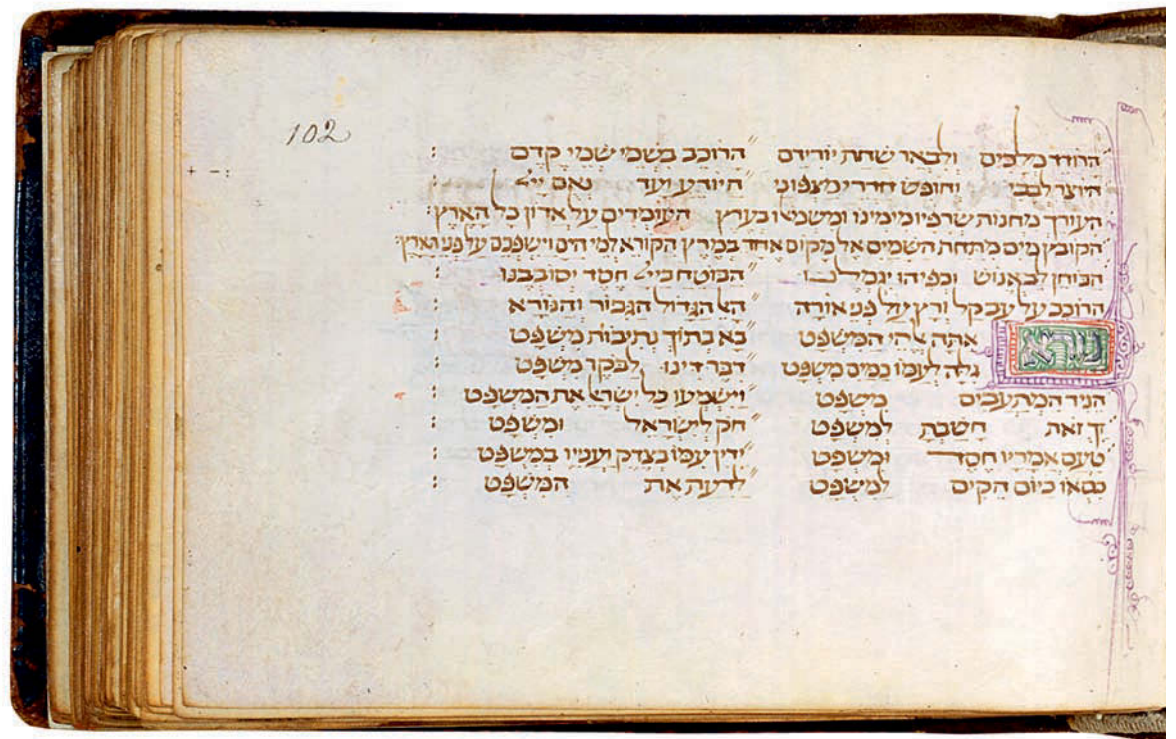 102
הרודד מלכים ולבאר שחת יורידם " הרוכב בשמי שמי קדם :
היוצר לבבי וחופש חדרי מצפוני " היודע ועד נאם ייי :
העורך מחנות שרפיו מימינו ומשמאלו בערץ העומדים על אדון כל הארץ :
הקובץ מים מתחת השמים אל מקום אחד במרץ הקורא למי הים וישפכם על פני הארץ :
הבוחן לב אנוש וכפיהו יגמלנו " הבוטח בייי חסד יסובבנו :
הרוכב על עב קל ורץ על פני אורה " האל הגדול הגבור והנורא :
נורא
אתה אלהי המשפט " בא בתוך נתיבות משפט :
גלה לעמו כמים משפט " דבר דינו לבקר משפט :
הניר המתעבים משפט " וישמעו כל ישראל את המשפט :
זאת חשבת למשפט " חק לישראל ומשפט :
טעם אמריו חסד ומשפט " ידין עמו בצדק ועניו במשפט :
כסאו ביום הקים למשפט " לדעת את המשפט :